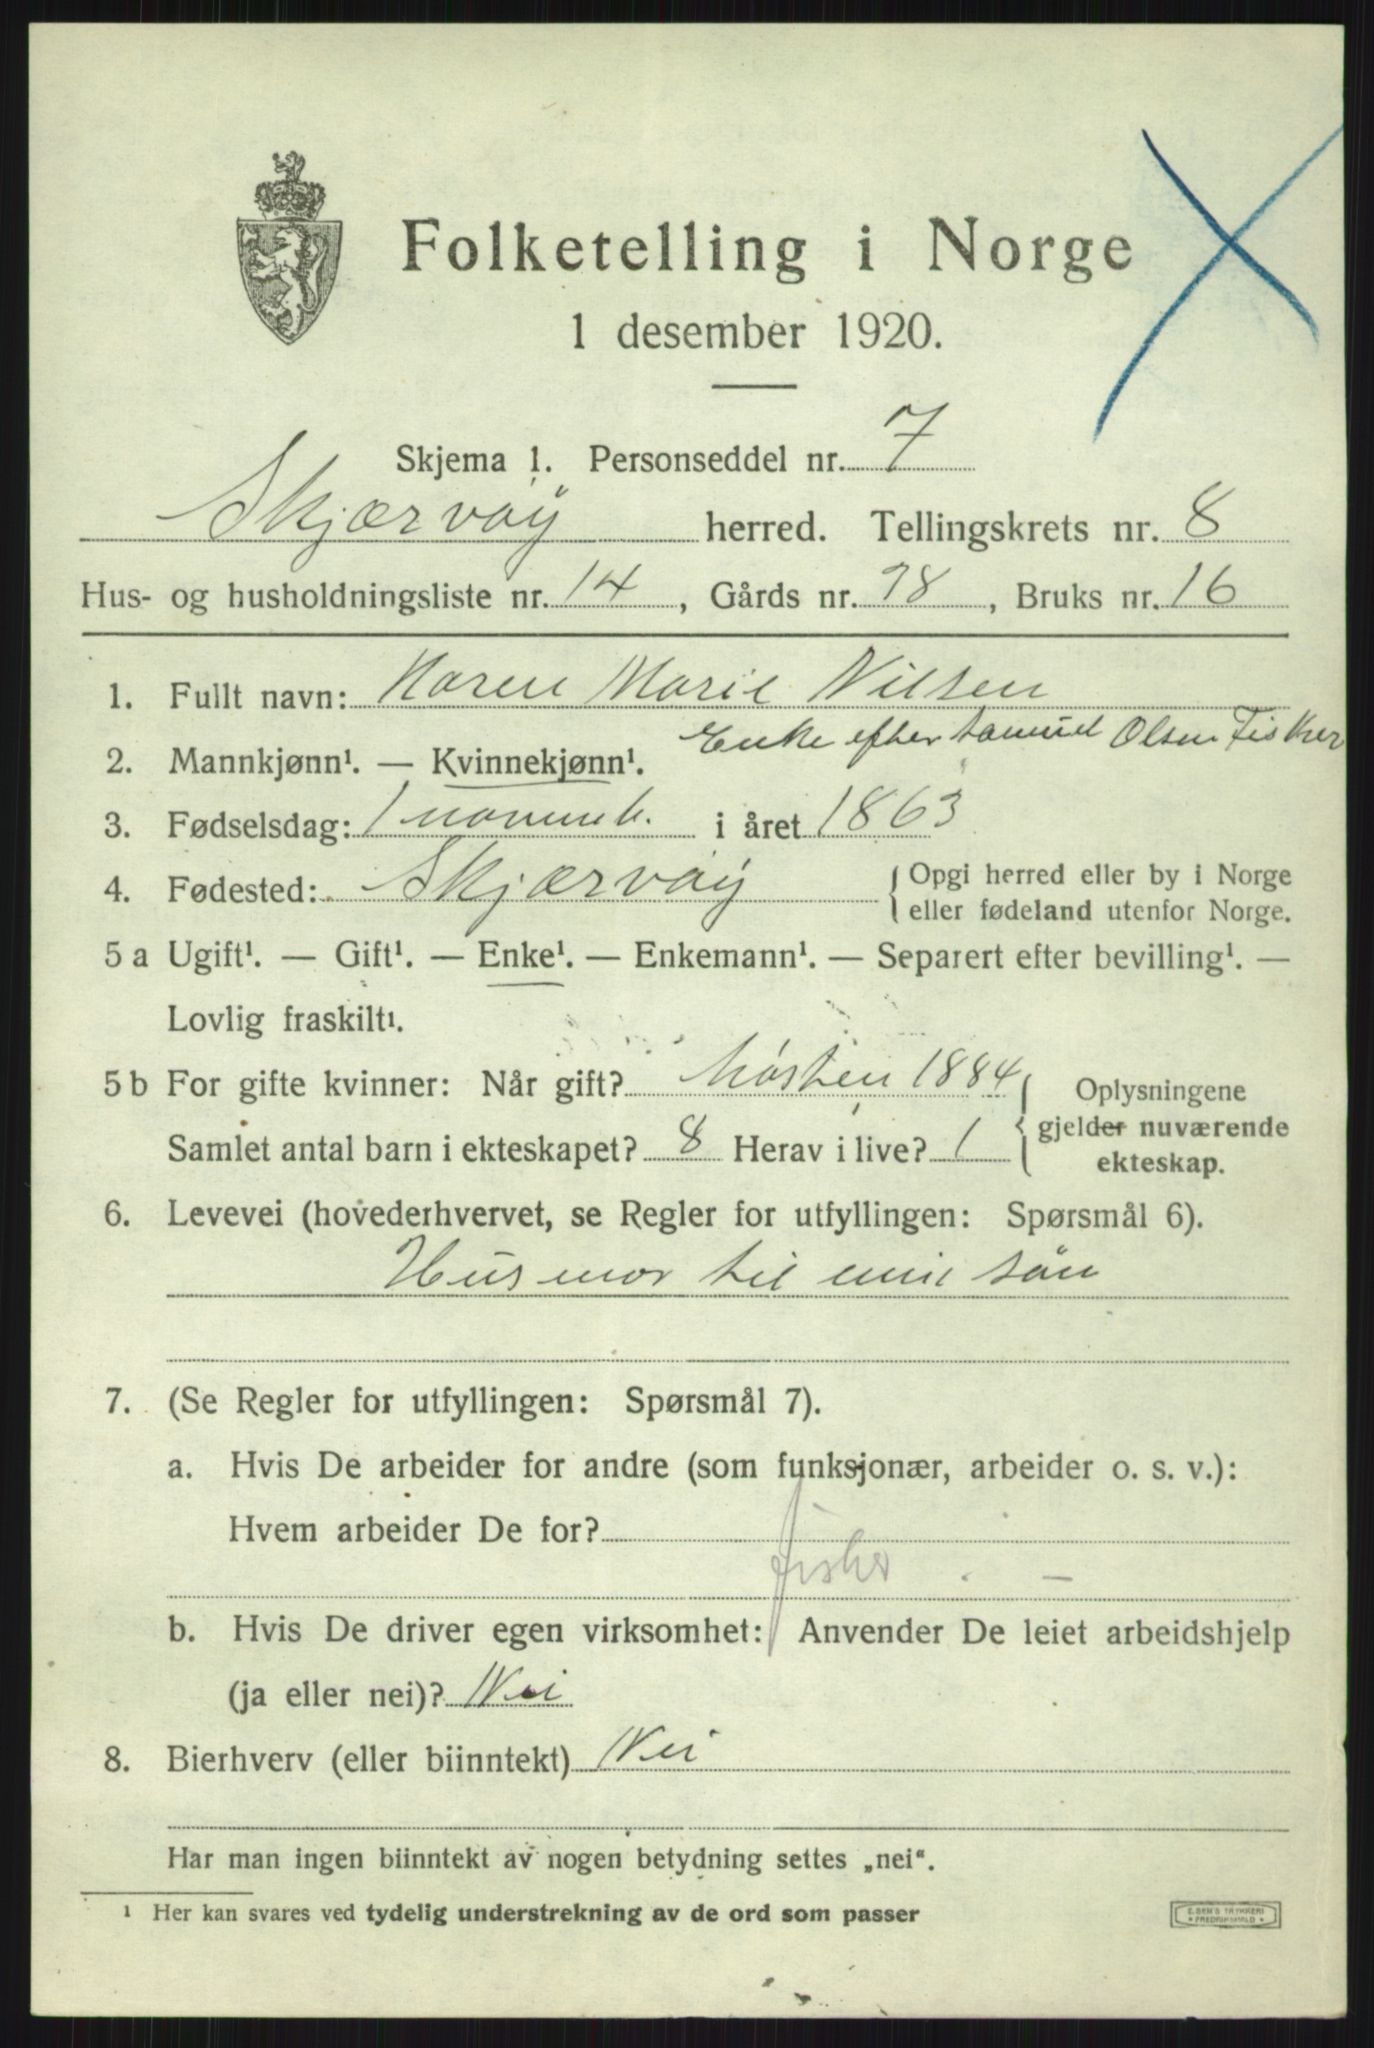 Folketelling i Norge
1 desember 1920.
Skjema 1. Personseddel nr. 7
Skjærvøy herred. Tellingskrets nr. 8
Hus- og husholdningsliste nr. 14, Gårds nr. 78, Bruks nr. 16
1. Fullt navn: Karen Marie Nilsen
Enke efter Samuel Olsen Fisker
2. Mannkjønn¹. — Kvinnekjønn¹.
3. Fødselsdag: 1 novemb. i året 1863
4. Fødested: Skjærvøy {Opgi herred eller by i Norge
eller fødeland utenfor Norge.
5 a Ugift¹. — Gift¹. — Enke¹. — Enkemann¹. — Separert efter bevilling¹. —
Lovlig fraskilt¹.
5 b For gifte kvinner: Når gift? Høsten 1884 { Oplysningene
Samlet antal barn i ekteskapet? 8 Herav i live? 1 gjelder nuværende
ekteskap.
6. Levevei (hovederhvervet, se Regler for utfyllingen: Spørsmål 6).
Husmor til min søn
7. (Se Regler for utfyllingen: Spørsmål 7).
a. Hvis De arbeider for andre (som funksjonær, arbeider o. s. v.):
Hvem arbeider De for?
fisker . —
b. Hvis De driver egen virksomhet: Anvender De leiet arbeidshjelp
(ja eller nei)? Nei
8. Bierhverv (eller biinntekt) Nei
Har man ingen biinntekt av nogen betydning settes „nei“.
¹ Her kan svares ved tydelig understrekning av de ord som passer
E. SEM'S TRYKKERI
* FREDRIKSHALD *